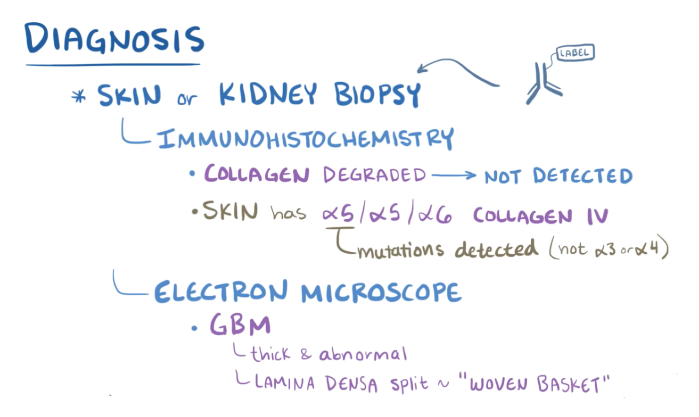 DIAGNOSIS
LABEL
* SKIN or KIDNEY BIOPSY
IMMUNOHISTOCHEMISTRY
• COLLAGEN DEGRADED → NOT DETECTED
• SKIN has α5/α5/α6 COLLAGEN IV
mutations detected (not α3 or α4)
ELECTRON MICROSCOPE
• GBM
thick & abnormal
LAMINA DENSA split ~ "WOVEN BASKET"